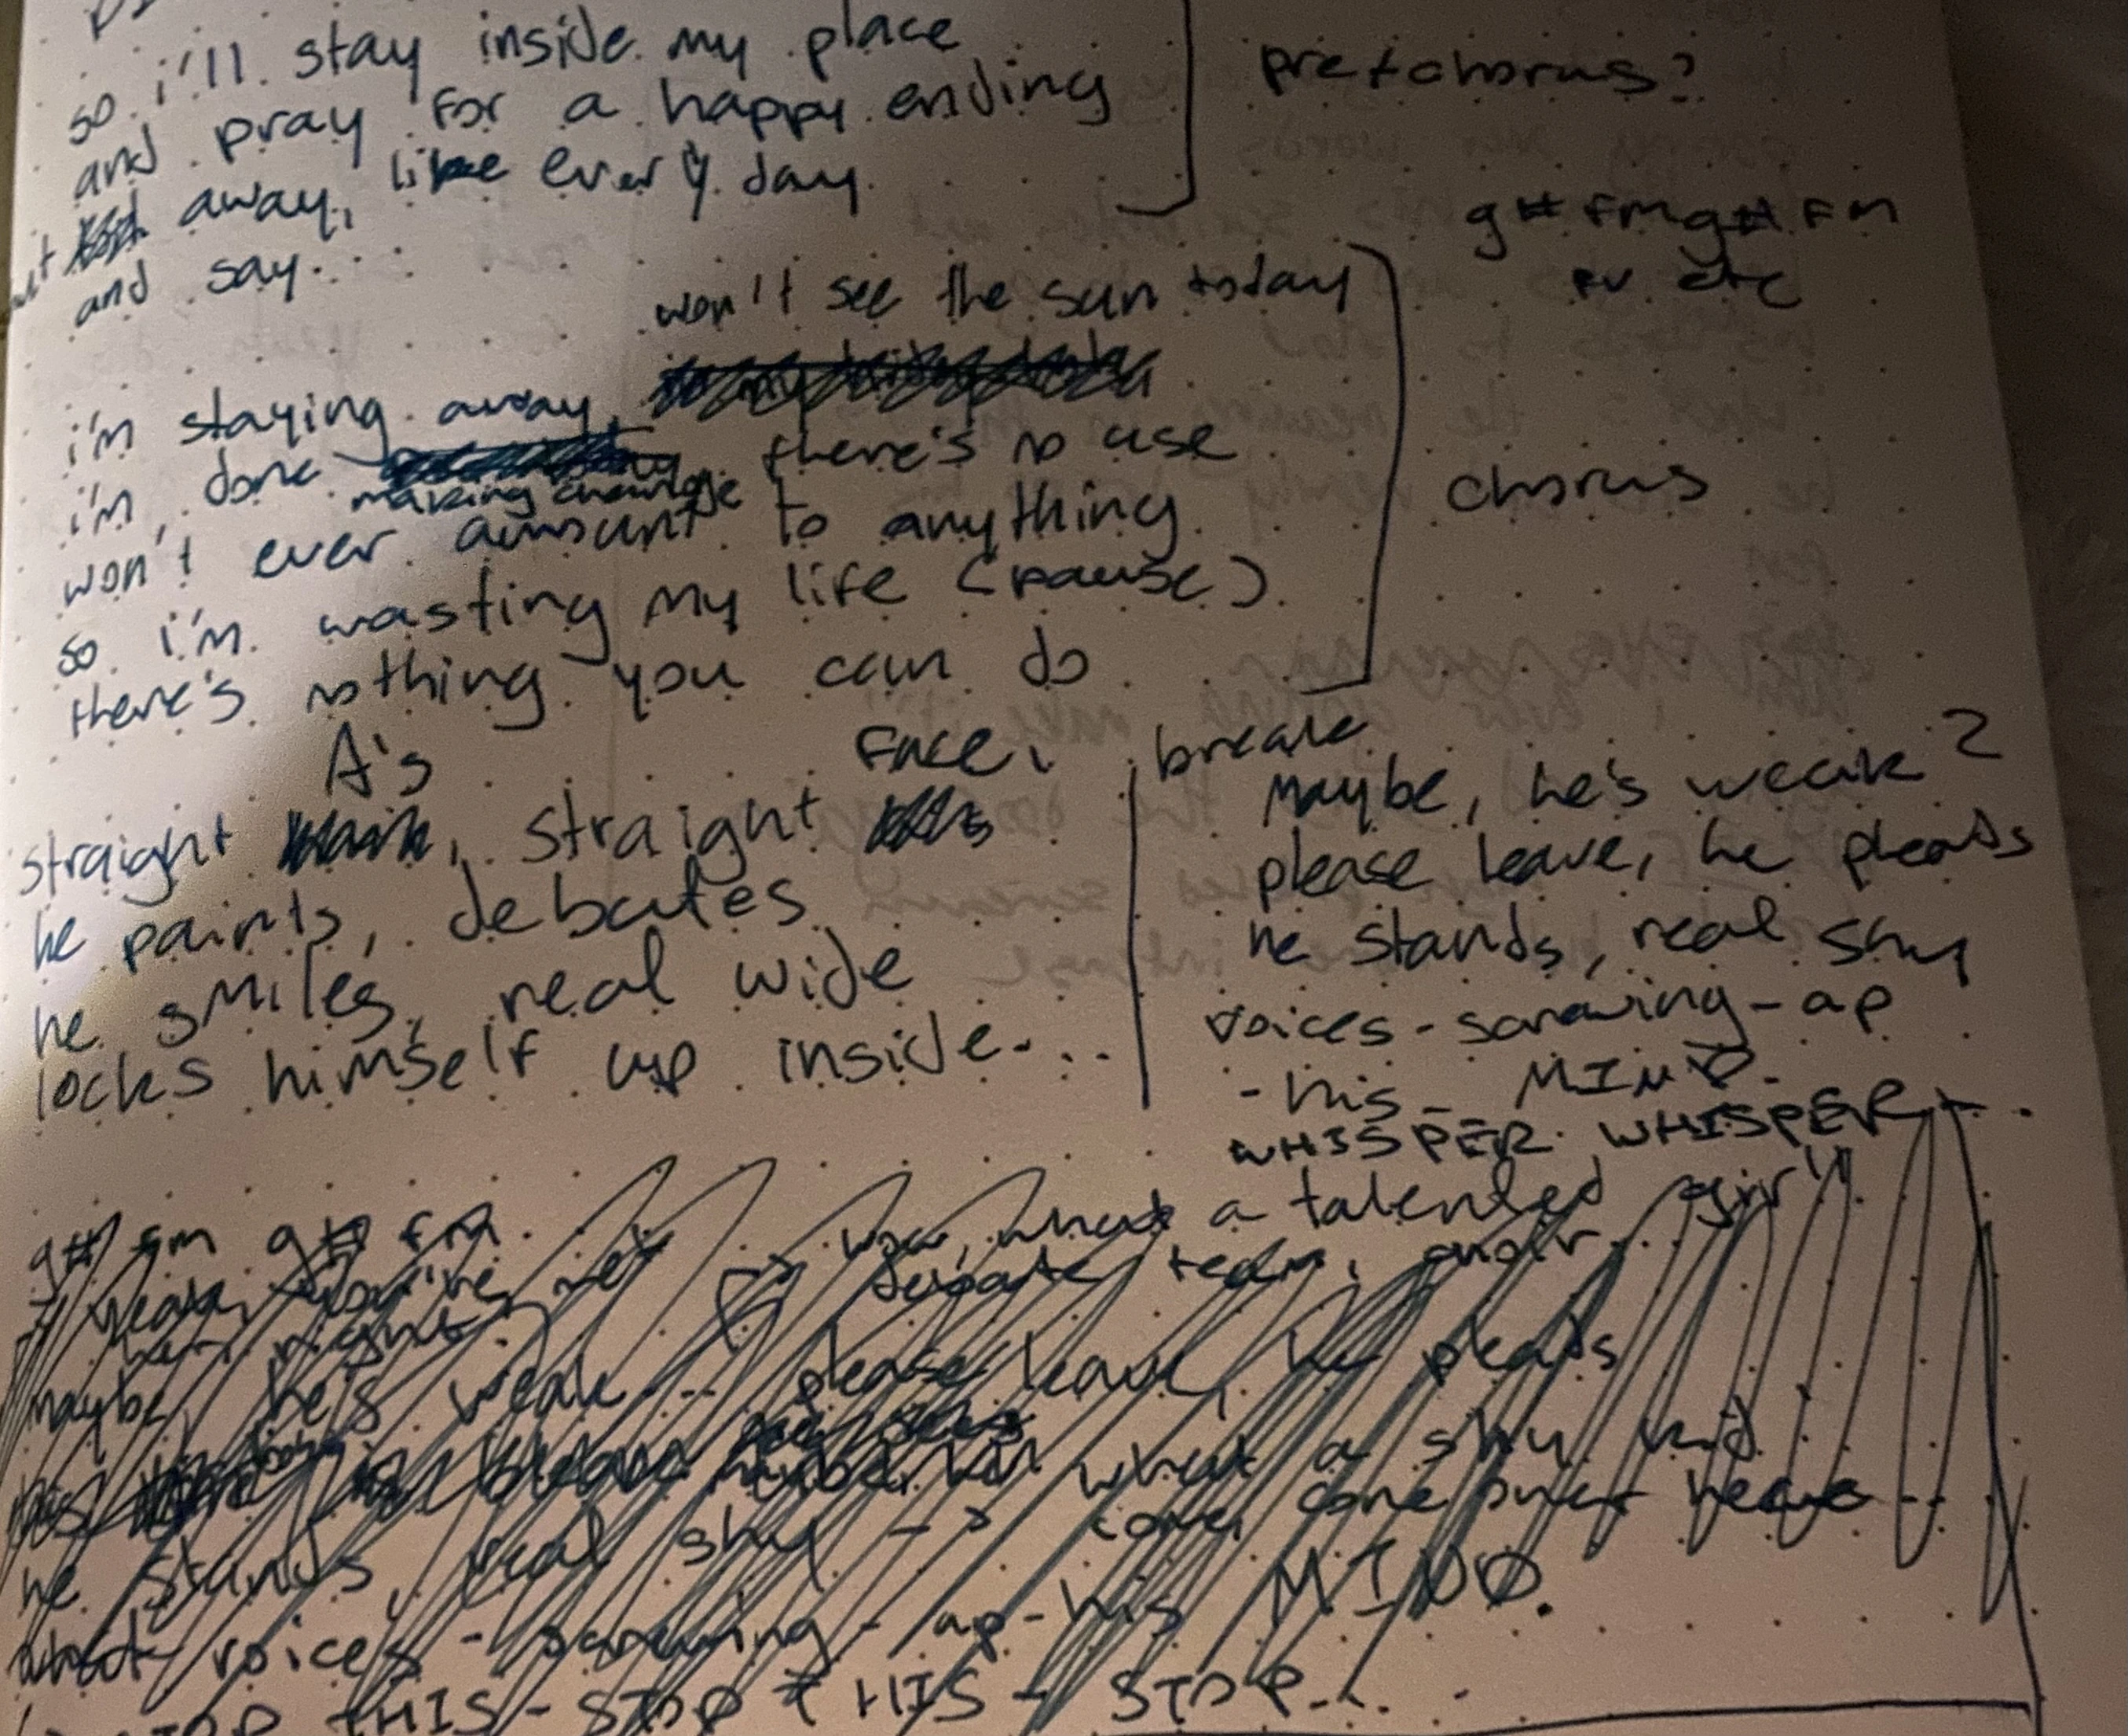 so i'll stay inside my place
and pray for a happy ending
away, like every day
and say...
prechorus?
g# fm g# fm
etc
won't see the sun today
i'm staying away,
i'm done making change there's no use
won't ever amount to anything
so i'm wasting my life (pause)
there's nothing you can do
chorus
A's face,
straight, straight
he paints, debates
he smiles, real wide
locks himself up inside...
break
maybe, he's weak?
please leave, he pleads
he stands, real shy
voices - screwing - up
- his - MIND.
WHISPER WHISPER
g# fm g# fm
wow, what a talented girl
yeah, you're
debate team, choir...
right
maybe, he's weak... please leave, he pleads
what a shy kid
he stands, real shy -> come over here --
voices - screwing - up - his MIND.
THIS - STOP THIS - STOP...